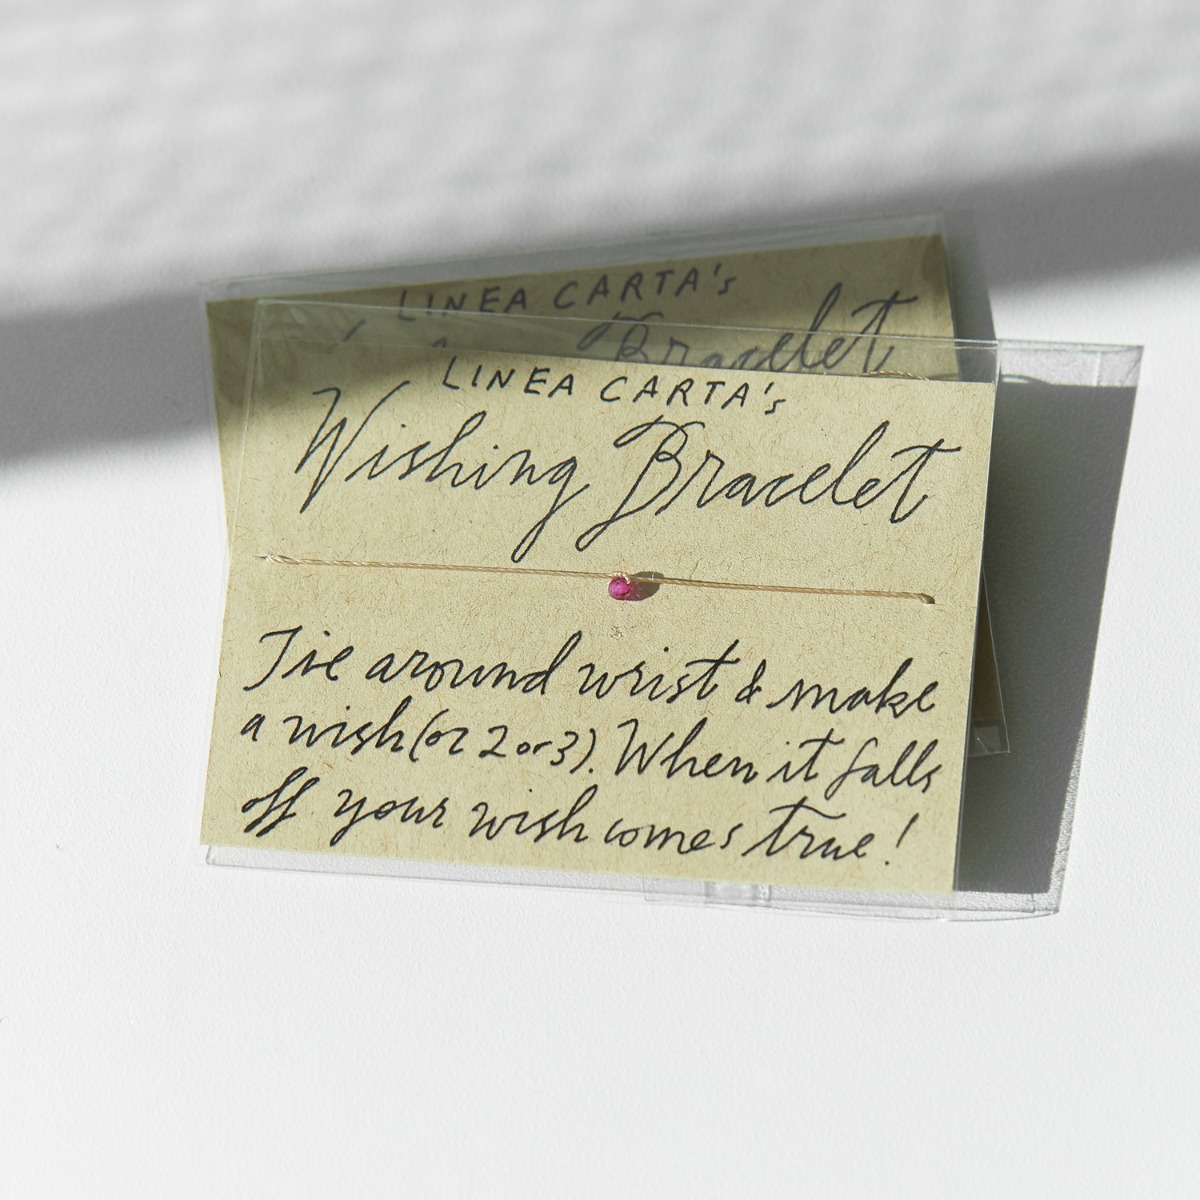 LINEA CARTA's
Bracelet
LINEA CARTA's
Wishing Bracelet
Tie around wrist & make
a wish (or 2 or 3). When it falls
off your wish comes true!